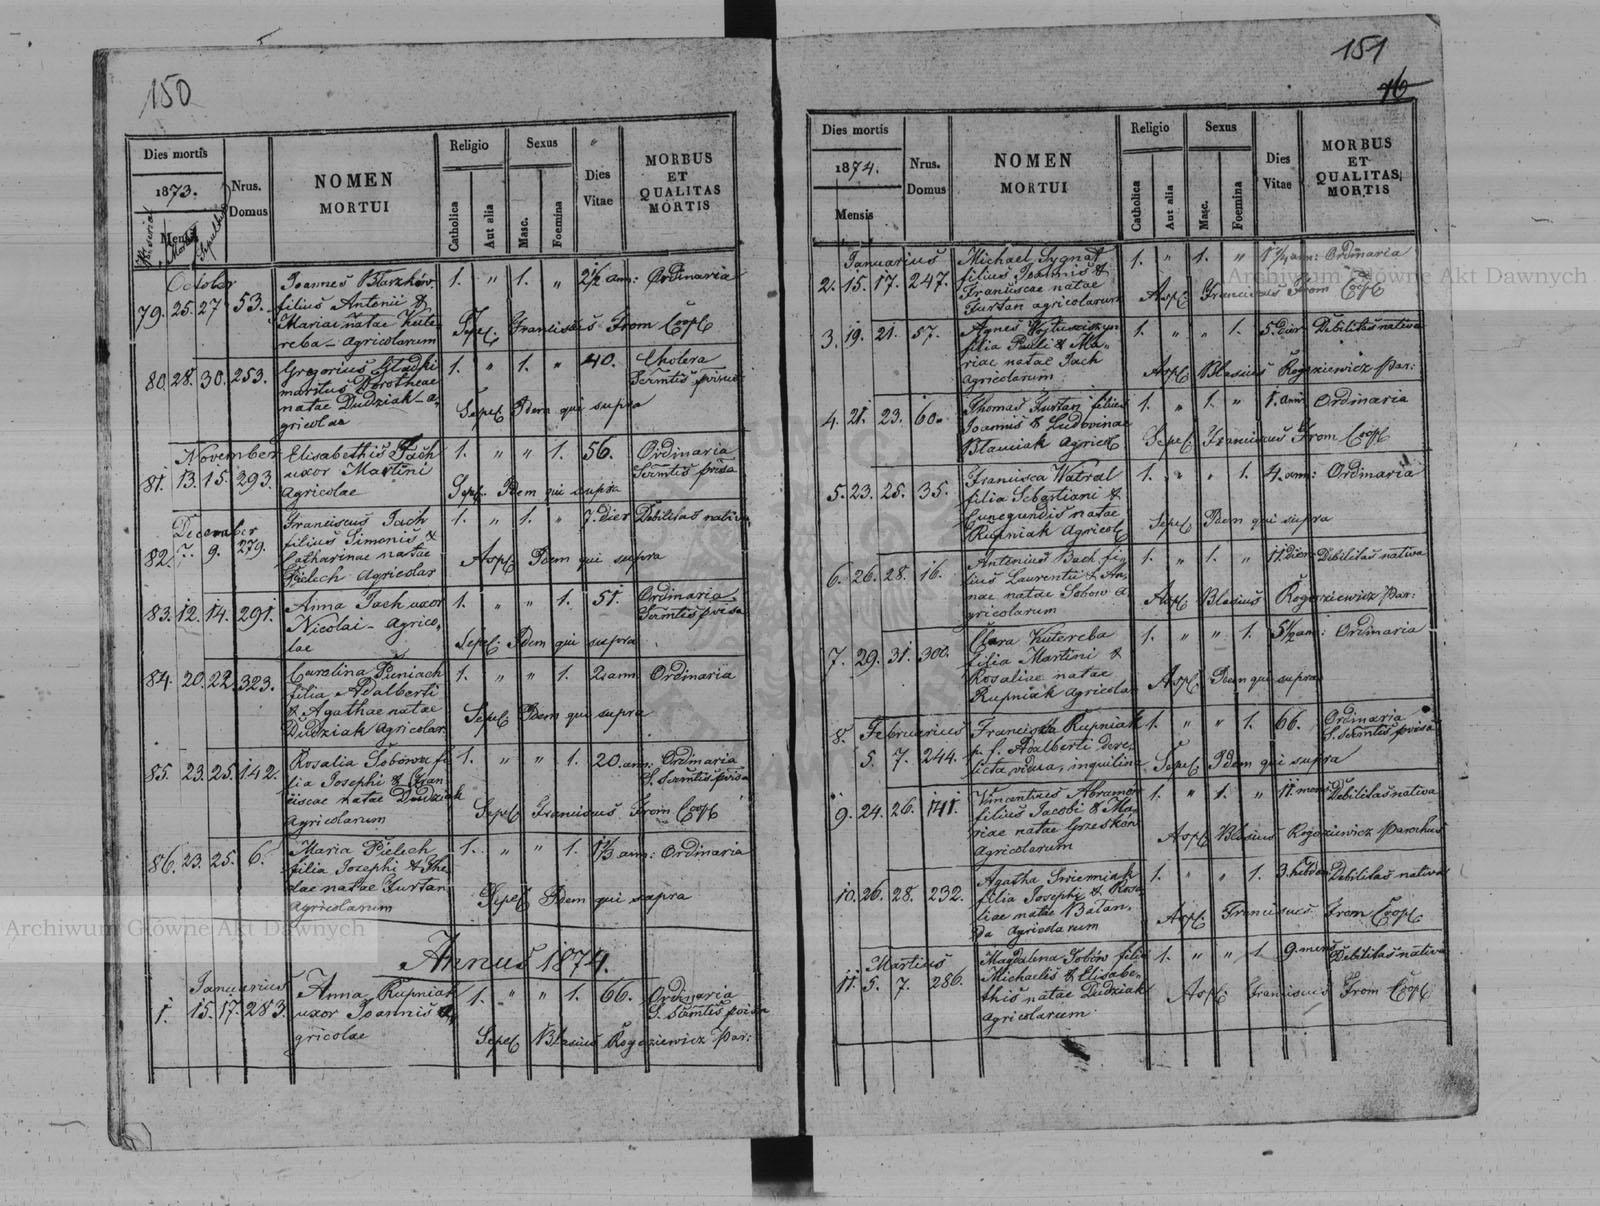 150
Dies mortis
1873.
Nr. serial
Mensis
Nrus.
Domus
NOMEN
MORTUI
Religio
Catholica
Aut alia
Sexus
Masc.
Foemina
Dies
Vitae
MORBUS
ET
QUALITAS
MORTIS
October
79. 25. 27 53.
Joannes Błaszków
filius Antonii &
Mariae natae Kute-
reba - agricolarum
1. " 1. " 2½ ann: Ordinaria
Sepel. Franciscus From Coop.
80. 28. 30. 253.
Gregorius Gładki
maritus Dorotheae
natae Dudziak - a-
gricolae
1. " 1. " 40. Cholera
Scrmtis prisus
Sepel Idem qui supra
November
81. 13. 15. 293.
Elisabethis Jach
uxor Martini
agricolae
1. " " 1. 56. Ordinaria
Scrmtis prisa
Sepel. Idem qui supra
December
82. 7. 9. 279.
Franciscus Jach
filius Simonis &
Catharinae natae
Pielech agricolar
1. " 1. " 7. dier Debilitas nativa
Aspel Idem qui supra
83. 12. 14. 291.
Anna Jach uxor
Nicolai - agrico-
lae
1. " " 1. 51. Ordinaria
Scrmtis prisa
Sepel Idem qui supra
84. 20. 22. 323.
Carolina Pieniach
filia Adalberti
& Agathae natae
Dudziak agricolar.
1. " " 1. 2. ann Ordinaria
Sepel Idem qui supra
85. 23. 25. 142.
Rosalia Sobowa fi-
lia Josephi & Fran-
ciscae natae Dudziak
agricolarum
1. " " 1. 20. ann: Ordinaria
S. Scrmtis prisa
Sepel Franciscus From Coop
86. 23. 25. 6.
Maria Pielech
filia Josephi & The-
clae natae Furtan
agricolarum
1. " " 1. 1⅓ ann: Ordinaria
Sepel Idem qui supra
Annus 1874.
Januarius
1. 15. 17. 283.
Anna Rupniak
uxor Joannis a-
gricolae
1. " " 1. 66. Ordinaria
S. Scrmtis prisa
Sepel Blasius Rogoziewicz Par:
151
76
Dies mortis
1874.
Mensis
Nrus.
Domus
NOMEN
MORTUI
Religio
Catholica
Aut alia
Sexus
Masc.
Foemina
Dies
Vitae
MORBUS
ET
QUALITAS
MORTIS
Januarius
2. 15. 17. 247.
Michael Sygnat
filius Joannis &
Franciscae natae
Furtan agricolarum
1. " 1. " ann: Ordinaria
Aspel. Franciscus From Coop
3. 19. 21. 57.
Agnes Wojtusciszyn
filia Pauli & Ma-
riae natae Jach
agricolarum
1. " " 1. 5. dier Debilitas nativa
Aspel Blasius Rogoziewicz Par:
4. 21. 23. 60.
Thomas Furtan filius
Joannis & Ludovinae
Blauciak agricol
1. " 1. " 1. ann Ordinaria
Sepel Franciscus From Coop
5. 23. 25. 35.
Francisca Watral
filia Sebastiani &
Cunegundis natae
Rupniak agricol
1. " " 1. 4. ann: Ordinaria
Sepel Idem qui supra
6. 26. 28. 16.
Antonius Bach fi-
lius Laurentii & An-
nae natae Sobow a-
gricolarum
1. " 1. " 11. dier Debilitas nativa
Aspel Blasius Rogoziewicz Par:
7. 29. 31. 300.
Clara Kutereba
filia Martini &
Rosaliae natae
Rupniak agricolar
1. " " 1. 5½ ann: Ordinaria
Aspel. Idem qui supra
8. Februarius
5. 7. 244.
Francisca Rupniak
p. f. Adalberti dere-
licta vidua, inquilina
1. " " 1. 66. Ordinaria
S. Scrmtis prisa
Sepel Idem qui supra
9. 24. 26. 141.
Vincentius Abramow
filius Jacobi & Ma-
riae natae Grzeskow
agricolarum
1. " 1. " 11. mens Debilitas nativa
Aspel Blasius Rogoziewicz Parochus
10. 26. 28. 232.
Agatha Swierniak
filia Josephi & Rosa-
liae natae Batan-
da agricolarum
1. " " 1. 3. hebdom Debilitas nativa
Aspel. Franciscus From Coop
Martius
11. 5. 7. 286.
Magdalena Sobow filia
Michaelis & Elisabe-
this natae Dudziak
agricolarum
1. " " 1 9. mens Debilitas nativa
Aspel. Franciscus From Coop
Archiwum Główne Akt Dawnych
Archiwum Główne Akt Dawnych